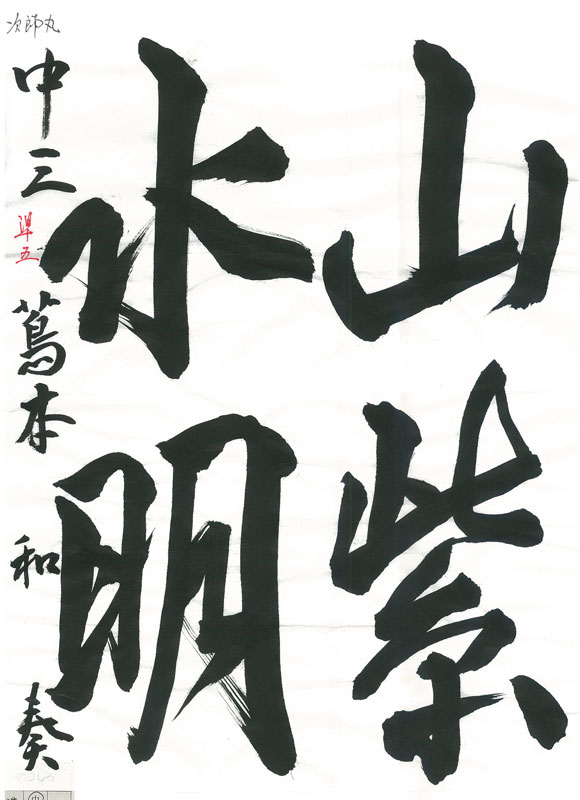 山紫
水明
次郎丸
中三 準五 蔦本 和奏